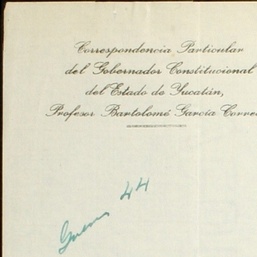 Correspondencia Particular
del Gobernador Constitucional
del Estado de Yucatán,
Profesor Bartolomé García Corre
44